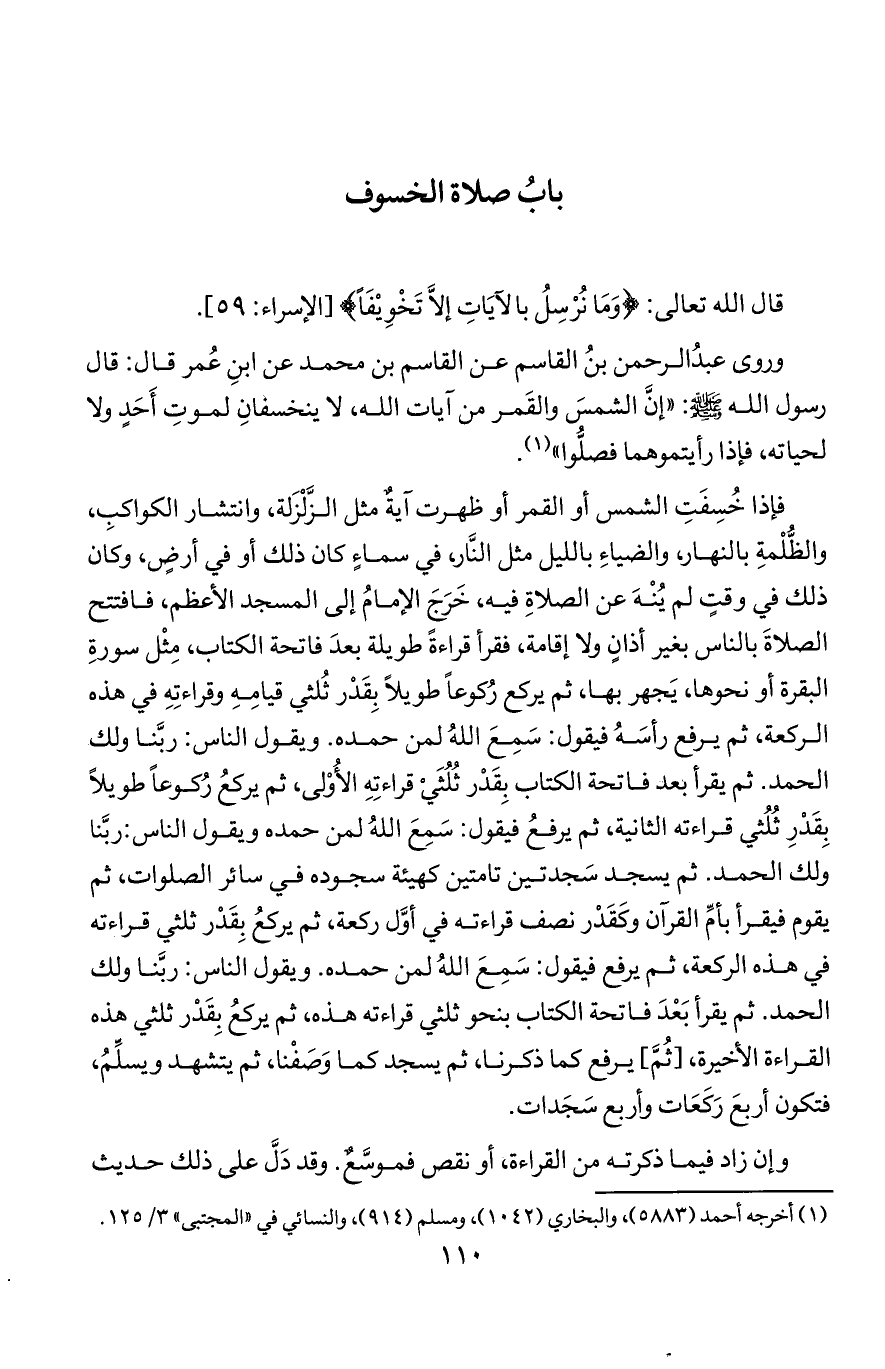 بابُ صلاة الخسوف
قال الله تعالى: ﴿وَمَا نُرْسِلُ بالآيَاتِ إلاَّ تَخْوِيْفَاً﴾ [الإسراء: ٥٩].
وروى عبدُالرحمن بنُ القاسم عن القاسم بن محمد عن ابنِ عُمر قال: قال
رسول الله ﷺ: «إنَّ الشمسَ والقَمر من آيات الله، لا ينخسفانِ لموتِ أَحَدٍ ولا
لحياته، فإذا رأيتموهما فصلُّوا»(١).
فإذا خُسِفَتِ الشمس أو القمر أو ظهرت آيةٌ مثل الزَّلْزَلة، وانتشار الكواكبِ،
والظُّلْمةِ بالنهار، والضياءِ بالليل مثل النَّار، في سماءٍ كان ذلك أو في أرضٍ، وكان
ذلك في وقتٍ لم يُنْهَ عن الصلاةِ فيه، خَرَجَ الإمامُ إلى المسجد الأعظم، فافتتح
الصلاةَ بالناس بغير أذانٍ ولا إقامة، فقرأ قراءةً طويلة بعدَ فاتحة الكتاب، مِثْل سورةِ
البقرة أو نحوها، يَجهر بها، ثم يركع رُكوعاً طويلاً بِقَدْر ثُلثي قيامِهِ وقراءتِهِ في هذه
الركعة، ثم يرفع رأسَهُ فيقول: سَمِعَ اللهُ لمن حمده. ويقول الناس: ربَّنا ولك
الحمد. ثم يقرأ بعد فاتحة الكتاب بِقَدْر ثُلُثَيْ قراءتِهِ الأُوْلى، ثم يركعُ رُكوعاً طويلاً
بِقَدْرِ ثُلُثي قراءته الثانية، ثم يرفعُ فيقول: سَمِعَ اللهُ لمن حمده ويقول الناس:ربَّنا
ولك الحمد. ثم يسجد سَجدتين تامتين كهيئة سجوده في سائر الصلوات، ثم
يقوم فيقرأ بأمِّ القرآن وكَقَدْر نصف قراءته في أوَّل ركعة، ثم يركعُ بِقَدْر ثلثي قراءته
في هذه الركعة، ثم يرفع فيقول: سَمِعَ اللهُ لمن حمده. ويقول الناس: ربَّنا ولك
الحمد. ثم يقرأ بَعْدَ فاتحة الكتاب بنحو ثلثي قراءته هذه، ثم يركعُ بِقَدْر ثلثي هذه
القراءة الأخيرة، [ثُمَّ] يرفع كما ذكرنا، ثم يسجد كما وَصَفْنا، ثم يتشهد ويسلِّمُ،
فتكون أربعَ رَكَعَات وأربع سَجَدات.
وإن زاد فيما ذكرته من القراءة، أو نقص فموسَّعٌ. وقد دَلَّ على ذلك حديث
(١) أخرجه أحمد (٥٨٨٣)، والبخاري (١٠٤٢)، ومسلم (٩١٤)، والنسائي في «المجتبى» ٣/ ١٢٥.
١١٠